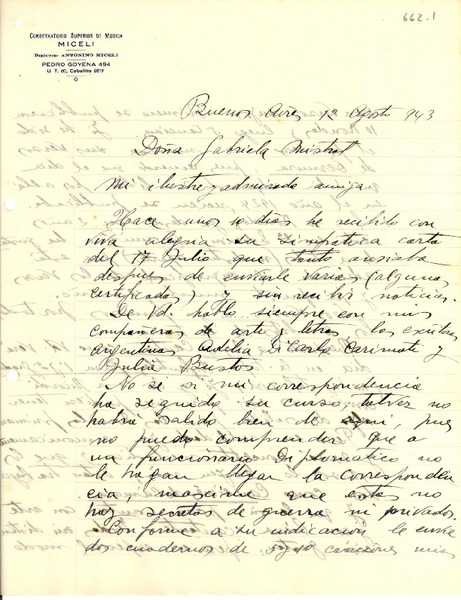 662.1
CONSERVATORIO SUPERIOR DE MUSICA
MICELI
DIRECTOR: ANTONINO MICELI
PEDRO GOYENA 494
U. T. 60, Caballito 2817
Buenos Aires 1º Agosto 943
Doña Gabriela Mistral
Mi ilustre y admirada amiga:
Hace unos 10 dias he recibido con
viva alegria su simpatica carta
del 17 Julio que tanto ansiaba
despues de enviarle varias (algunas
certificadas) y sin recibir noticias.
De Vd. hablo siempre con mis
compañeras de arte y letras las escritoras
argentinas Adilia Di Carlo Carimati y
Julia Bustos.
No se si mi correspondencia
ha seguido su curso, talvez no
habrá salido bien de pues
no puedo comprender que a
un funcionario Diplomatico no
le hagan llegar la corresponden
cia, maxime que estas no
hay secretos de guerra ni privados.
Conforme a su indicación le envie
dos cuadernos de canciones mias